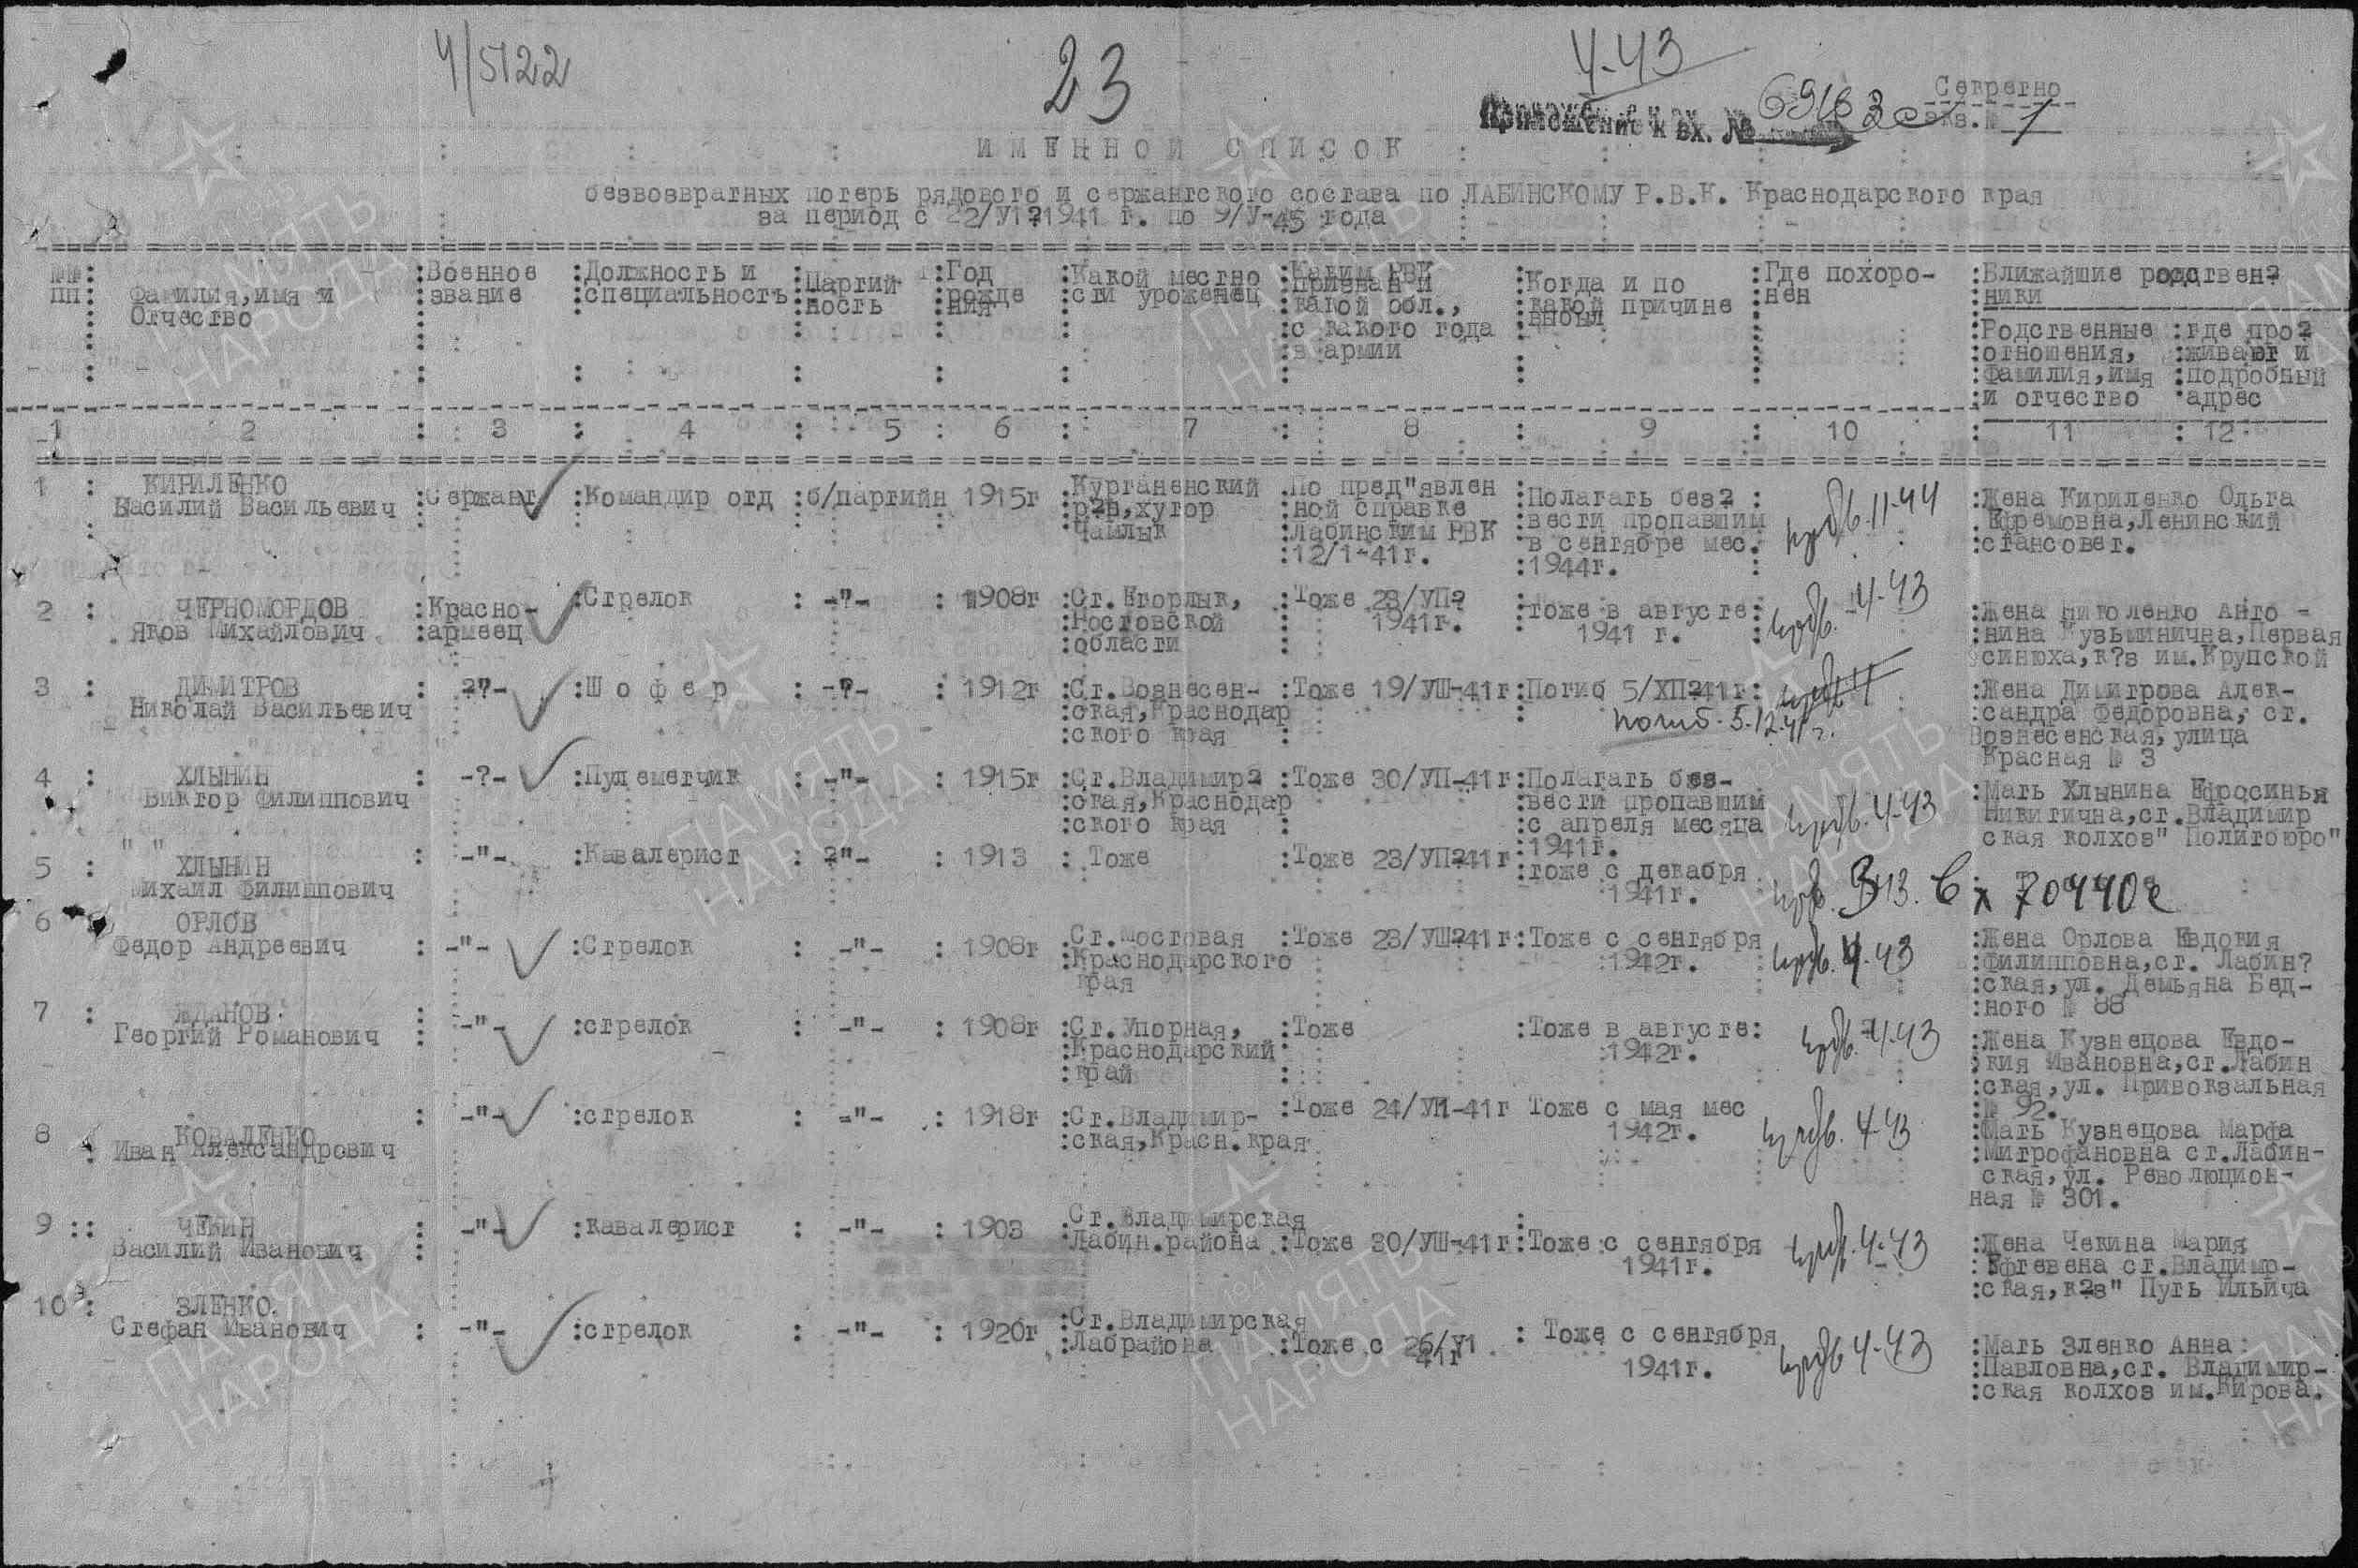 4/5122
23
4-43
Секретно
Приложение к вх. №
экз. № 1
ИМЕННОЙ СПИСОК
безвозвратных потерь рядового и сержантского состава по ЛАБИНСКОМУ Р.В.К. Краснодарского края
за период с 22/У1?1941 г. по 9/У-45 года
№№ пп
Фамилия,имя и Отчество
Военное звание
Должность и специальность
Партий ность
Год рожде ния
Какой местно сти уроженец
Каким РВК призван и какой обл., с какого года в армии
Когда и по какой причине выбыл
Где похоро- нен
Ближайшие родствен? ники
Родственные отношения, фамилия,имя и отчество
где про? живают и подробный адрес
1 2 3 4 5 6 7 8 9 10 11 12
1 : КИРИЛЕНКО Василий Васильевич
:Сержант
:Командир отд
:б/партийн
1915г
Курганенский р?н,хутор Чамлык
По пред"явлен ной справке Лабинским РВК 12/1-41г.
Полагать без? вести пропавшим в сентябре мес. 1944г.
11-44
Жена Кириленко Ольга Ефремовна,Ленинский стансовет.
2 : ЧЕРНОМОРДОВ Яков Михайлович
:Красно- армеец
:Стрелок
: -?-
: 1908г
:Ст. Егорлык, Ростовской области
:Тоже 23/УП? 1941г.
:тоже в августе 1941 г.
4-43
:Жена Николенко Анто - нина Кузьминична,Первая синюха,к?з им.Крупской
3 : ДИМИТРОВ Николай Васильевич
: ?"-
:Ш о ф е р
: -?-
: 1912г
:Ст.Вознесен- ская,Краснодар ского края
:Тоже 19/УШ-41г
:Погиб 5/ХП?41г
погиб. 5.12.41г.
:Жена Димитрова Алек- сандра Федоровна, ст. Вознесенская,улица Красная № 3
4 : ХЛЫНИН Виктор Филиппович
: -?-
:Пулеметчик
: -"-
: 1915г
:Ст.Владимир? ская,Краснодар ского края
:Тоже 30/УП-41г
:Полагать без- вести пропавшим с апреля месяца 1941г.
4-43
:Мать Хлынина Ефросинья Никитична,ст.Владимир ская колхоз" Политбюро"
" "
5 : ХЛЫНИН Михаил Филиппович
: -"-
:Кавалерист
: ?"-
: 1913
: Тоже
:Тоже 23/УП?41г
:тоже с декабря 1941г.
704402
6 ОРЛОВ Федор Андреевич
: -"-
:Стрелок
: -"-
: 1908г
:Ст.Мостовая Краснодарского края
:Тоже 23/УШ?41г
:Тоже с сентября 1942г.
4-43
:Жена Орлова Евдокия Филипповна,ст. Лабин? ская,ул. Демьяна Бед- ного № 88
7 : ЖДАНОВ Георгий Романович
: -"-
:стрелок
: -"-
: 1908г
:Ст. Упорная, Краснодарский край
:Тоже
:Тоже в августе 1942г.
4-43
:Жена Кузнецова Евдо- кия Ивановна,ст.Лабин ская,ул. Привокзальная № 92.
8 КОВАЛЕНКО Иван Александрович
: -"-
:стрелок
: ="-
: 1918г
:Ст.Владимир- ская,Красн.края
:Тоже 24/УП-41г
Тоже с мая мес 1942г.
4-43
:Мать Кузнецова Марфа Митрофановна ст.Лабин- ская,ул. Революцион- ная № 301.
9 :: ЧЕКИН Василий Иванович
: -"-
:кавалерист
: -"-
: 1903
Ст.Владимирская Лабин.района
:Тоже 30/УШ-41г
:Тоже с сентября 1941г.
4-43
:Жена Чекина Мария Ефтевена ст.Владимр- ская,к?з" Путь Ильича
10 : ЗЛЕНКО Стефан Иванович
: -"-
:стрелок
: -"-
: 1920г
:Ст.Владимирская Лабрайона
:Тоже с 26/У1 41г
: Тоже с сентября 1941г.
4-43
:Мать Зленко Анна Павловна,ст. Владимир- ская колхоз им.Кирова.
ПАМЯТЬ НАРОДА